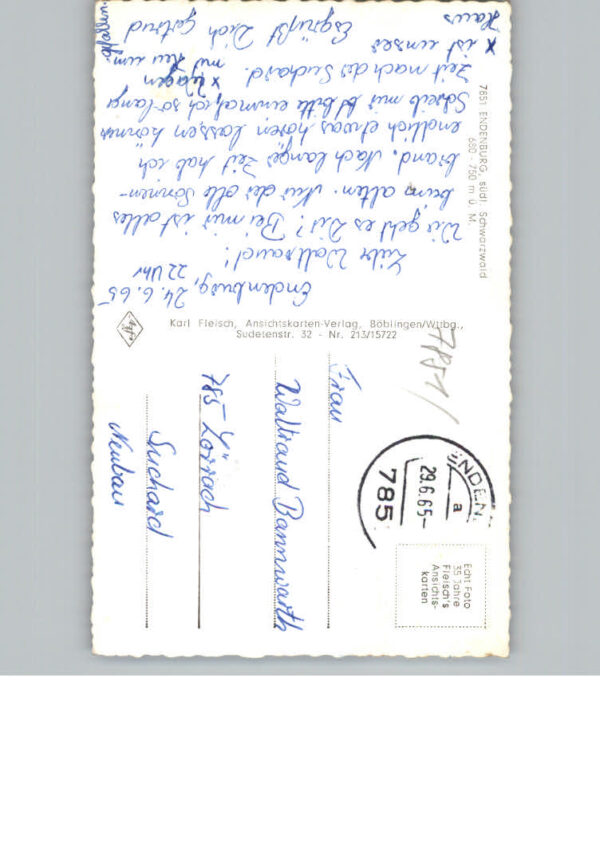 7851 ENDENBURG, südl. Schwarzwald
680 - 750 m ü. M.
Endenburg, 24.6.65
22 Uhr
Liebe Waltraud!
Wie geht es Dir? Bei mir ist alles
beim alten. Nur der alle Sonnen-
brand. Nach langer Zeit hab ich
endlich etwas hören lassen können
Schreib mir bitte einmal, ich so lange
Zeit nach der Suchard.
x ist unser
Haus
Es grüßt Dich Gertrud
x Wagen
mit Heu um-
Karl Fleisch, Ansichtskarten-Verlag, Böblingen/Wttbg.,
Sudetenstr. 32 - Nr. 213/15722
7851/
ENDEN
a
29.6.65-
785
Echt Foto
35 Jahre
Fleisch's
Ansichts-
karten
Frau
Waltraud Bannwarth
785 Lörrach
Suchard
Neubau